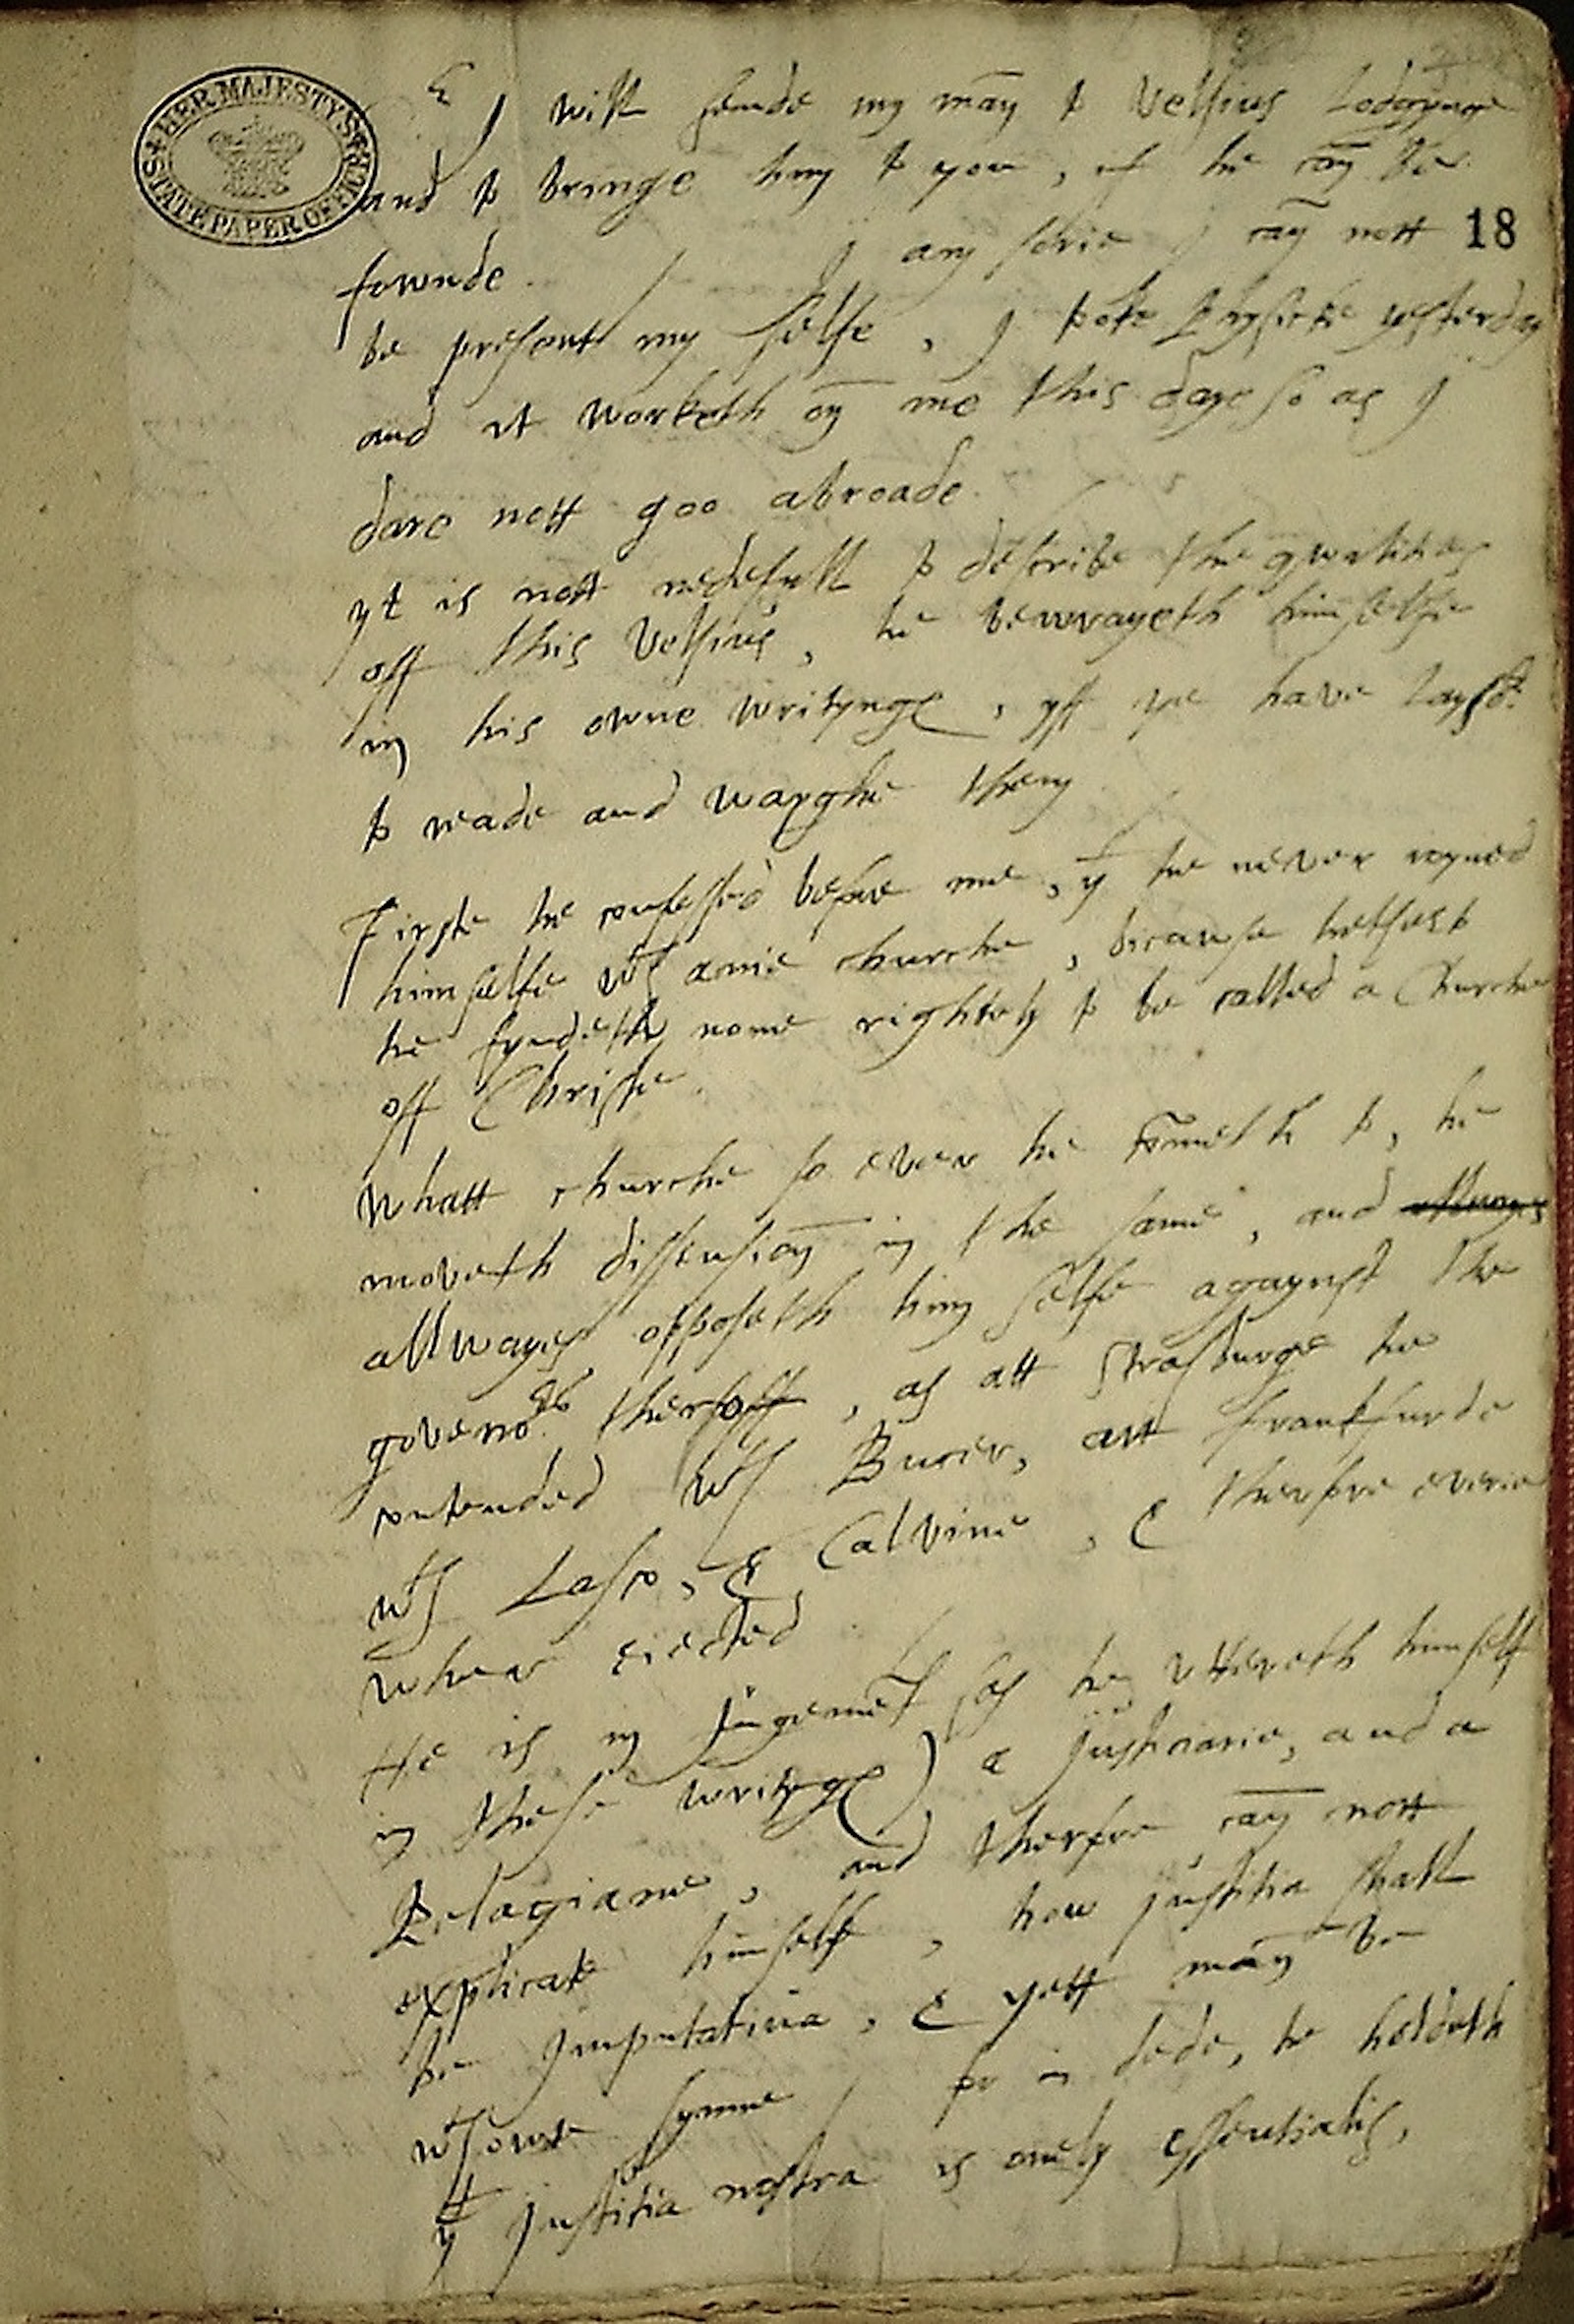 HER MAJESTY'S STATE PAPER OFFICE
18
I will sende my mā to Velsius Lodgynge
and to bringe hym to you, if he cā be
fownde. I am sorie I cā nott
be present my selfe, I toke Physicke yesterday
and it worketh on me this daye so as I
dare nott goo abroade.
yt is nott nedefull to describe the qwalities
off this Velsius, he bewrayeth himselfe
in his owne writynges, yff ye have laysor
to reade and wayghe them
Firste he cōfessed before me, yt he never ioyned
himselfe wt anie churche, bicause
he fyndeth none rightely to be called a Churche
off Christe.
Whatt churche so ever he cometh to, he
moveth dissensiō in the same, and allwayes
allwayes opposeth hym selfe agaynst the
governors theroff, as att Strasburge he
contended wt Bucer, att Frankfurde
wt Lasco, & Calvine, & therfore everie
wher eiected.
He is in Jugemēt (as he uttereth himself
in these writyges) a Justiciarie, and a
Pelagiane, and therfore cā nott
explicate himself, how justitia shall
be Imputativa, & yett mā be
wtowte synne for in dede, he holdeth
yt justitia nostra is onely essentialis,